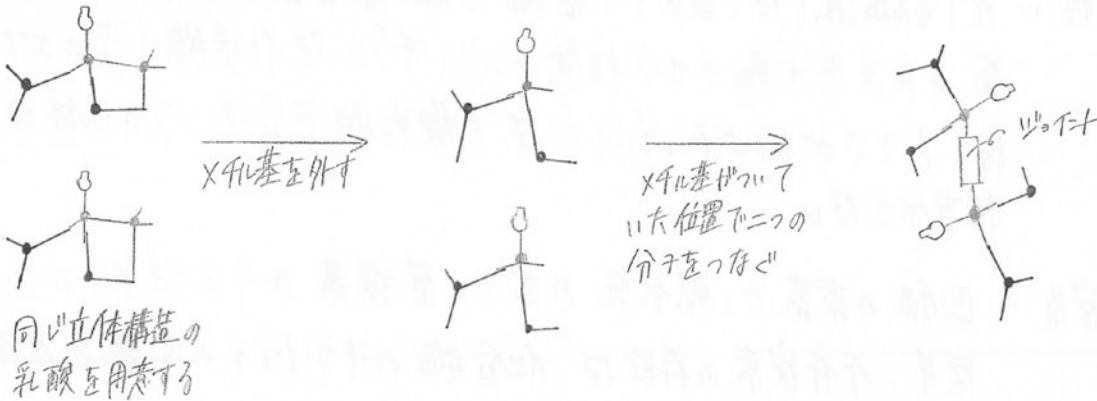 メチル基を外す
メチル基がついて
いた位置で二つの
分子をつなぐ
ジョイント
同じ立体構造の
乳酸を用意する